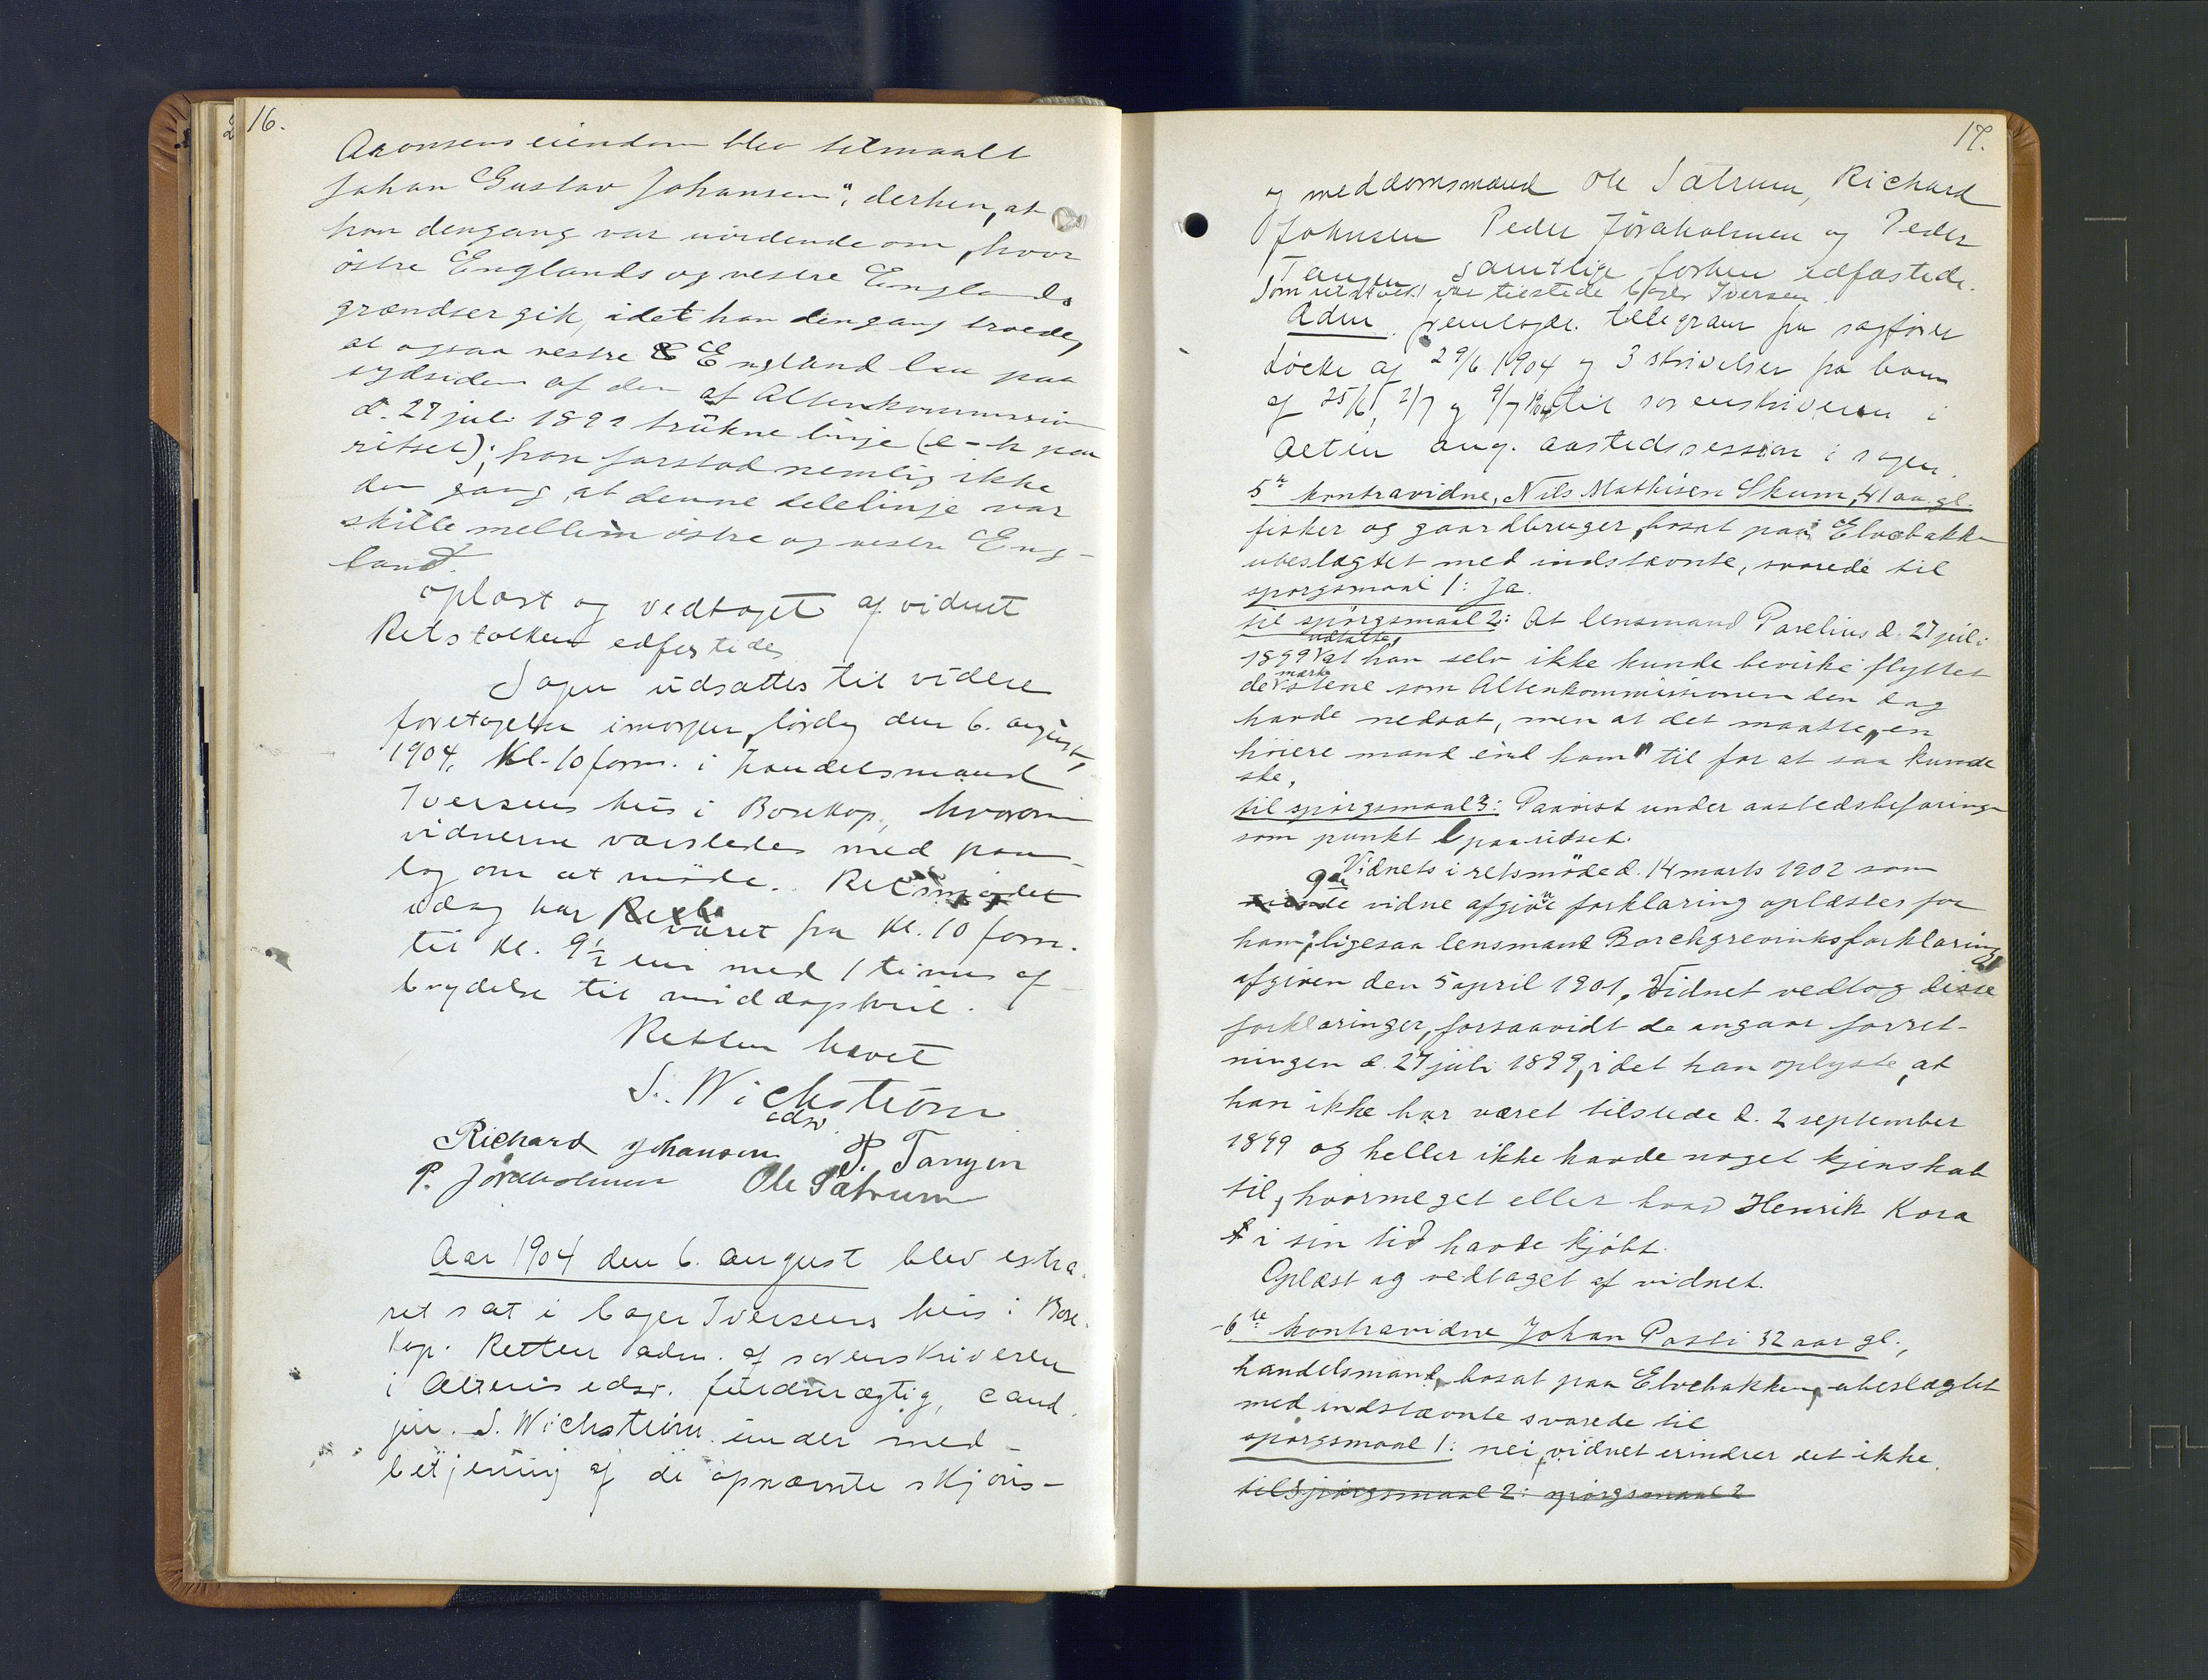 16.
Aronsens eiendom blev tilmaalt
Johan Gustav Johansen", derhen, at
han dengang var uvidende om, hvor
østre Englands og vestre Englands
grændser gik, idet han dengang troede,
at ogsaa vestre England laa paa
sydsiden af den af Altenkommission
d. 27 juli 1899 trukne linje (e-h paa
ridset); han forstod nemlig ikke
den gang, at denne delelinje var
skille mellem østre og vestre Eng-
land.
Oplæst og vedtaget af vidnet
Retstolken edfestedes
Sagen udsattes til videre
foretagelse imorgen, lørdag den 6. august,
1904, Kl. 10 form. i handelsmand
Iversens hus i Bosekop, hvorom
vidnerne varsledes med paa-
læg om at møde. Retsmødet
idag har været fra Kl. 10 form.
til Kl. 9½ em med 1 times af-
brydelse til middagshvil.
Retten hævet
S. Wichstrøm
edsv.
Richard Johansen P. Tangen
P. Jøraholmen Ole Sætrum
Aar 1904 den 6. august blev extra-
ret sat i Cajer Iversens hus i Bose-
kop. Retten adm. af sorenskriveren
i Altens edsv. fuldmægtig, cand.
jur. S. Wichstrøm under med-
betjening af de opnævnte skjøns-
17.
og meddomsmænd Ole Sætrum, Richard
Johnsen Peder Jøraholmen og Peder
Tangen samtlige forhen edfæstede.
Som retstolk var tilstede Cajer Iversen.
Adm. fremlagde telegram fra sagfører
Løcke af 29/6 1904 og 3 skrivelser fra ham
af 25/6, 2/7 og 9/7 1904 til sorenskriveren i
Alten ang. aastedssession i sagen.
5te kontravidne, Nils Mathisen Skum, 41 aar gl.
fisker og gaardbruger, bosat paa Elvebakken
ubeslægtet med indstævnte, svarede til
spørgsmaal 1: Ja.
til spørgsmaal 2: At lensmand Parelius d. 27 juli
1899 udtalte, at han selv ikke kunde bevirke flyttet
de mærkestene som Altenkommissionen den dag
havde nedsat, men at det maatte "en
høiere mand end ham" til for at saa kunde
ske.
til spørgsmaal 3: Paavist under aastedsbefaringen
som punkt l paa ridset.
Vidnets i retsmøde d. 14 marts 1902 som
9de vidne afgivne forklaring oplæstes for
ham, ligesaa lensmand Borchgrevinks forklaring
afgiven den 5 april 1901. Vidnet vedtog disse
forklaringer, forsaavidt de angaar forret-
ningen d. 27 juli 1899, idet han oplyste, at
han ikke har været tilstede d. 2 september
1899 og heller ikke havde noget kjenskab
til, hvormeget eller hvad Henrik Kora
i sin tid havde kjøbt.
Oplæst og vedtaget af vidnet.
6te kontravidne Johan Posti 32 aar gl.,
handelsmand, bosat paa Elvebakken, ubeslægtet
med indstævnte svarede til
spørgsmaal 1: nei, vidnet erindrer det ikke.
til spørgsmaal 2: spørgsmaal 2